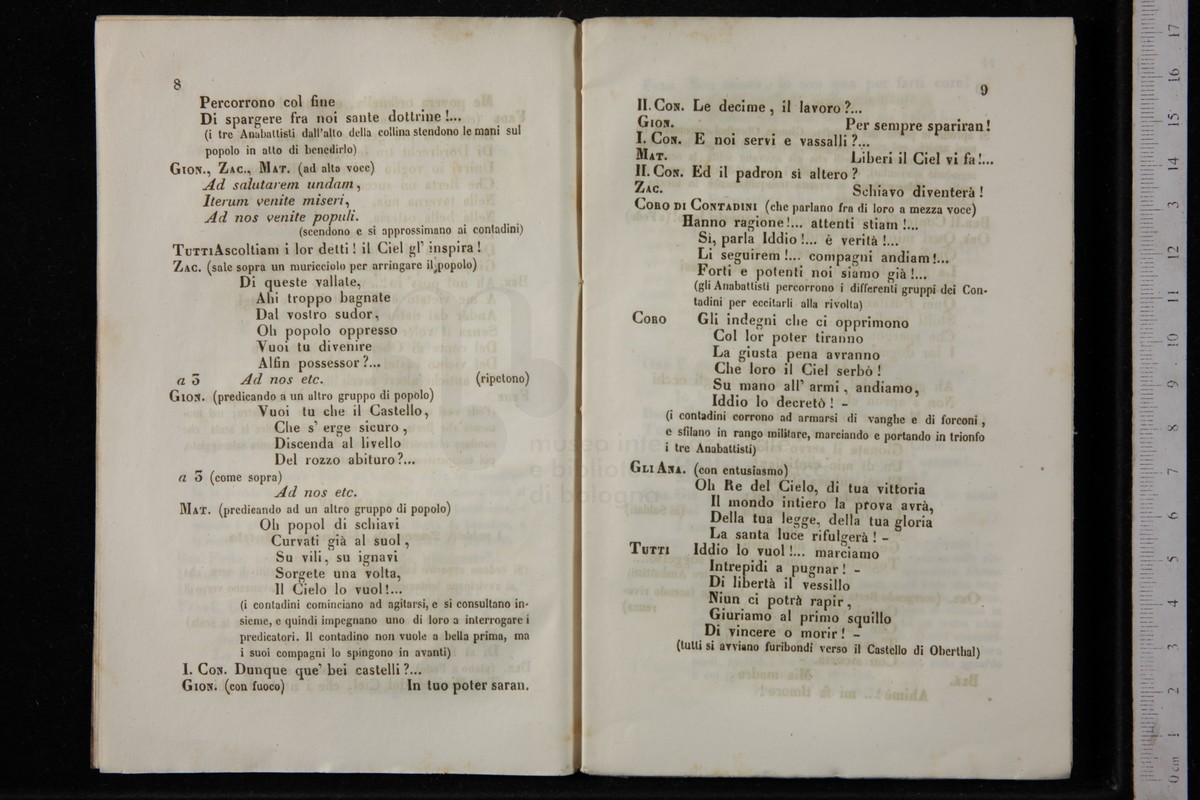 8
Percorrono col fine
Di spargere fra noi sante dottrine !...
(i tre Anabattisti dall'alto della collina stendono le mani sul
popolo in atto di benedirlo)
GION., ZAC., MAT. (ad alta voce)
Ad salutarem undam,
Iterum venite miseri,
Ad nos venite populi.
(scendono e si approssimano ai contadini)
TUTTI Ascoltiam i lor detti ! il Ciel gl' inspira !
ZAC. (sale sopra un muricciolo per arringare il popolo)
Di queste vallate,
Ahi troppo bagnate
Dal vostro sudor,
Oh popolo oppresso
Vuoi tu divenire
Alfin possessor ?...
a 3 Ad nos etc. (ripetono)
GION. (predicando a un altro gruppo di popolo)
Vuoi tu che il Castello,
Che s' erge sicuro,
Discenda al livello
Del rozzo abituro ?...
a 3 (come sopra)
Ad nos etc.
MAT. (predicando ad un altro gruppo di popolo)
Oh popol di schiavi
Curvati già al suol,
Su vili, su ignavi
Sorgete una volta,
Il Cielo lo vuol !...
(i contadini cominciano ad agitarsi, e si consultano in-
sieme, e quindi impegnano uno di loro a interrogare i
predicatori. Il contadino non vuole a bella prima, ma
i suoi compagni lo spingono in avanti)
I. CON. Dunque que' bei castelli ?...
GION. (con fuoco) In tuo poter saran.
9
II. CON. Le decime, il lavoro ?...
GION. Per sempre spariran !
I. CON. E noi servi e vassalli ?...
MAT. Liberi il Ciel vi fa !...
II. CON. Ed il padron sì altero ?
ZAC. Schiavo diventerà !
CORO DI CONTADINI (che parlano fra di loro a mezza voce)
Hanno ragione !... attenti stiam !...
Sì, parla Iddio !... è verità !...
Li seguirem !... compagni andiam !...
Forti e potenti noi siamo già !...
(gli Anabattisti percorrono i differenti gruppi dei Con-
tadini per eccitarli alla rivolta)
CORO Gli indegni che ci opprimono
Col lor poter tiranno
La giusta pena avranno
Che loro il Ciel serbò !
Su mano all' armi, andiamo,
Iddio lo decretò ! -
(i contadini corrono ad armarsi di vanghe e di forconi,
e sfilano in rango militare, marciando e portando in trionfo
i tre Anabattisti)
GLI ANA. (con entusiasmo)
Oh Re del Cielo, di tua vittoria
Il mondo intiero la prova avrà,
Della tua legge, della tua gloria
La santa luce rifulgerà ! -
TUTTI Iddio lo vuol !... marciamo
Intrepidi a pugnar ! -
Di libertà il vessillo
Niun ci potrà rapir,
Giuriamo al primo squillo
Di vincere o morir ! -
(tutti si avviano furibondi verso il Castello di Oberthal)